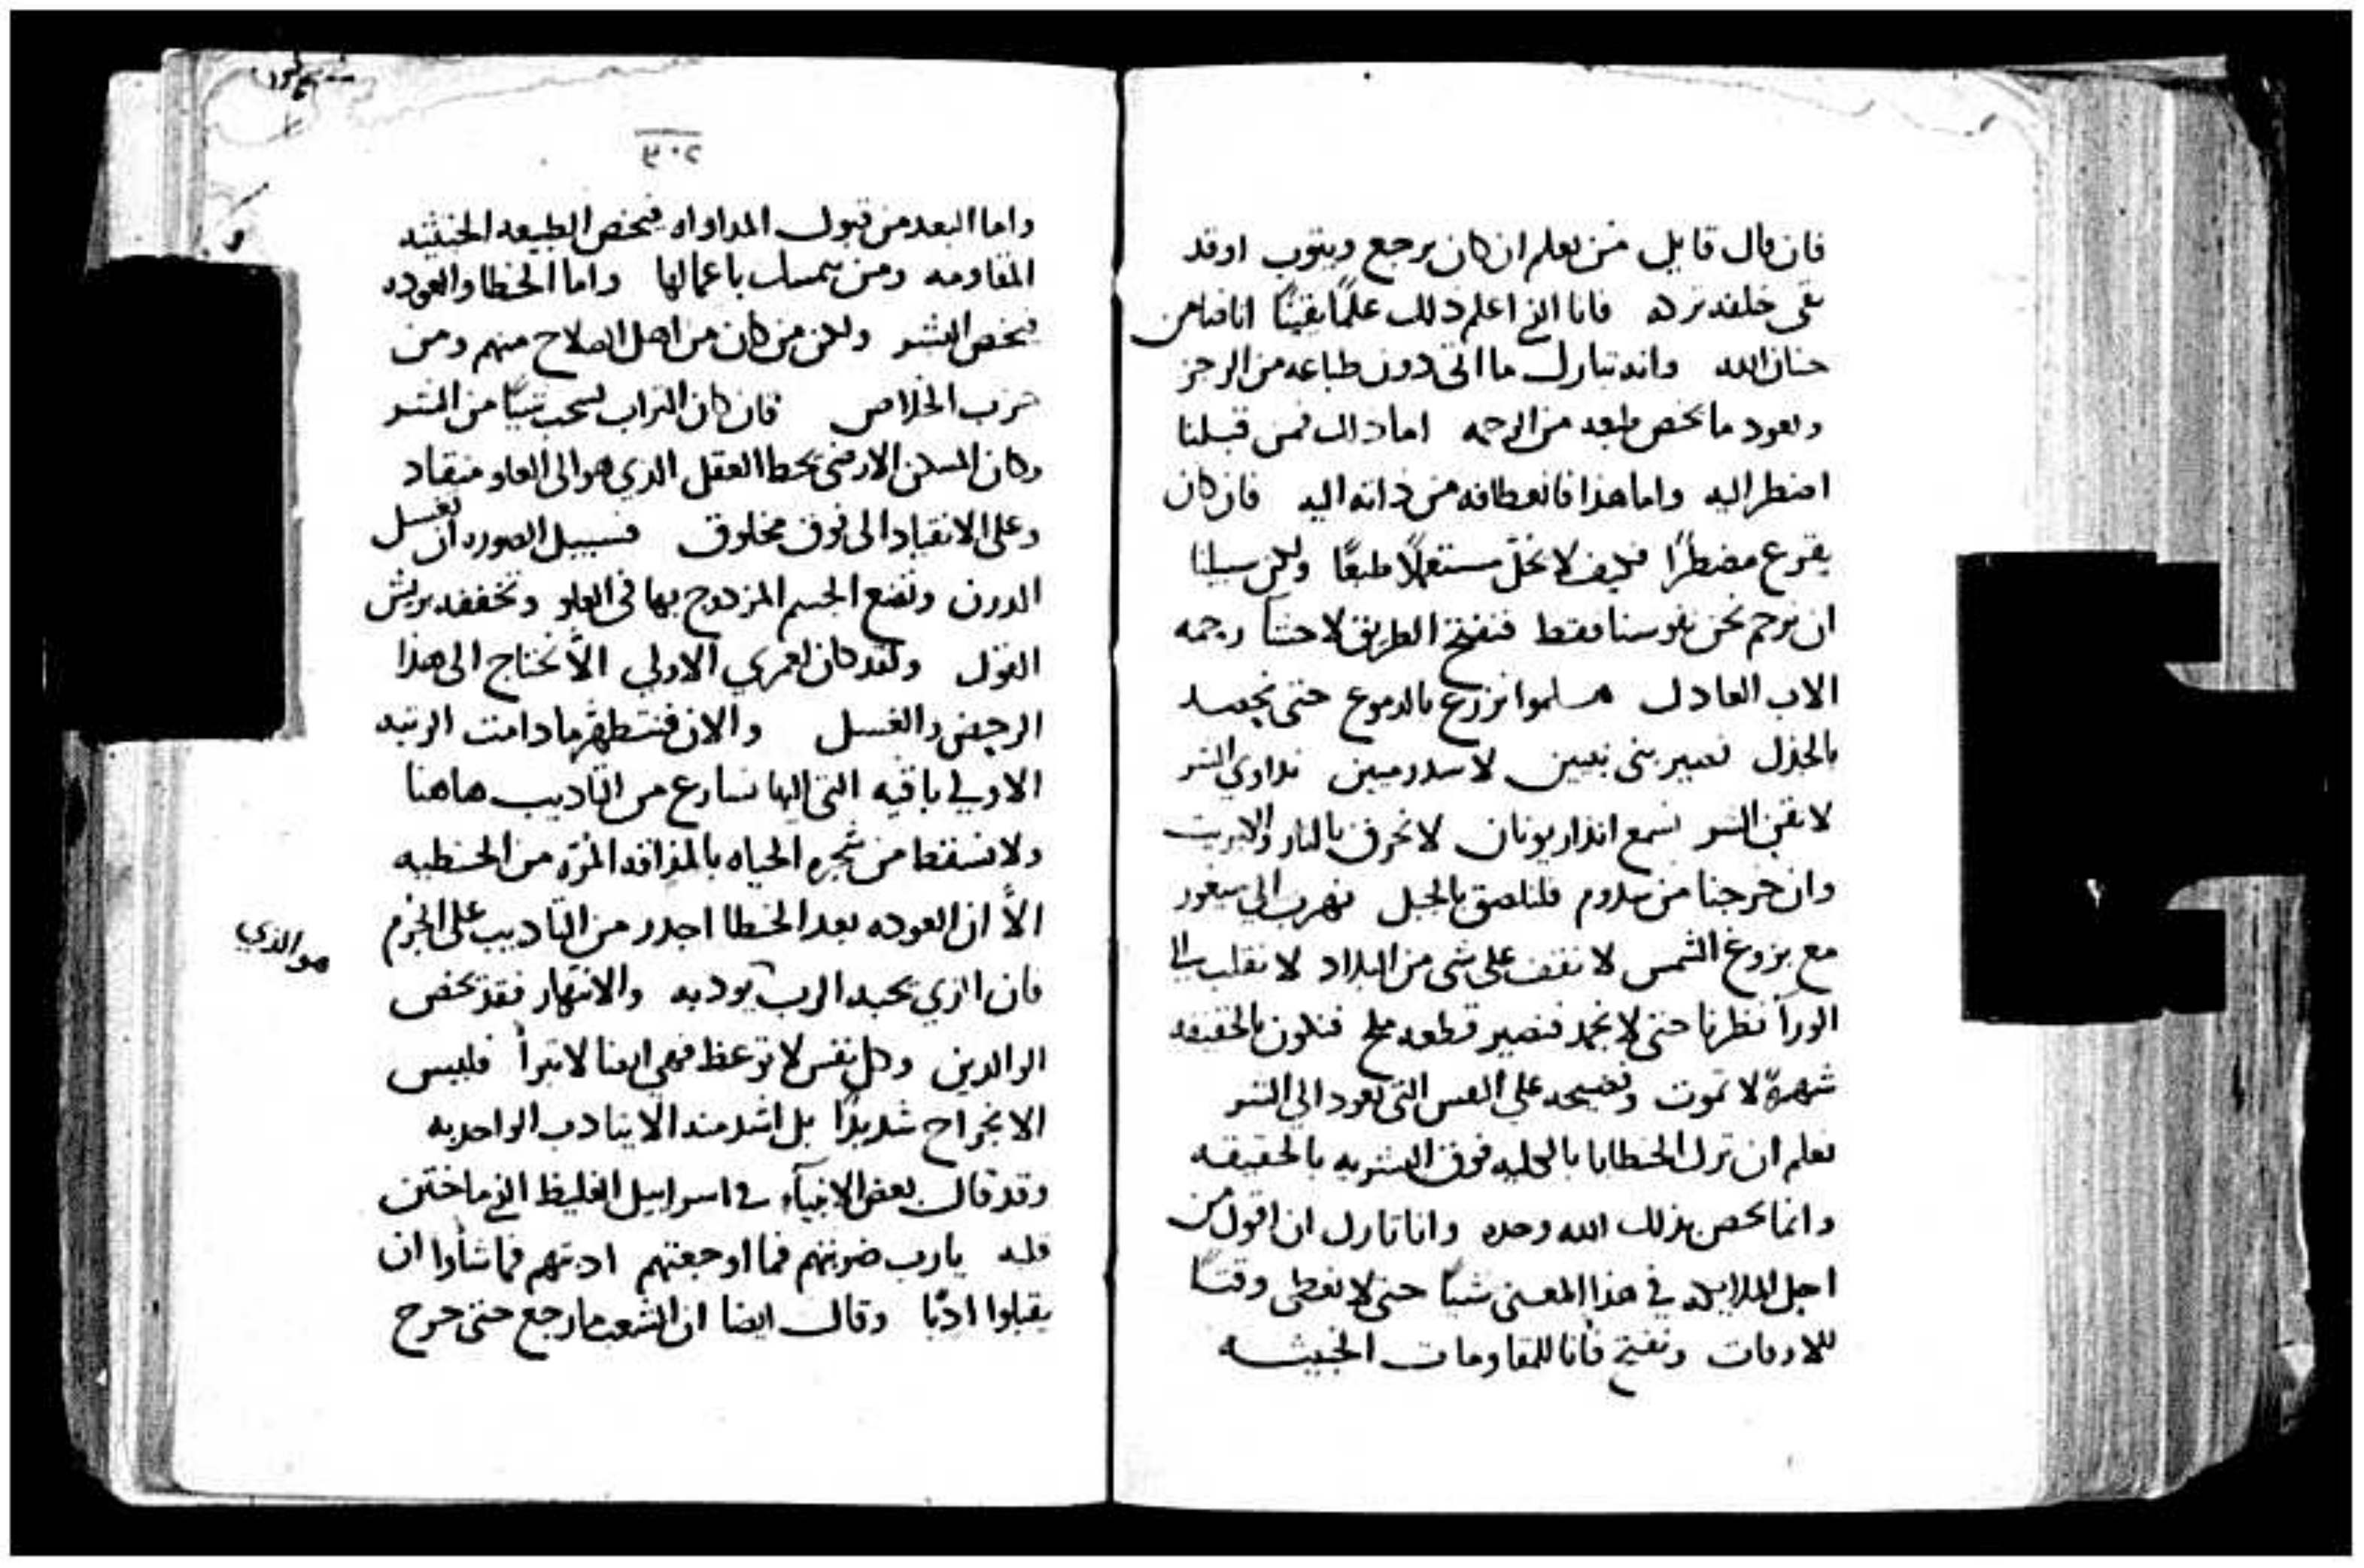 فان قال قايل فمن يعلم ان كان يرجع ويتوب او قد
بقى خلفه بركه فانا الذي اعلم ذلك علمًا يقينًا انا ضامن
حنان الله وانه تبارك ما اتى دون طباعه من الرجز
ويعود ما يخص طبعه من الرحمه اما ذاك فمن قبلنا
اضطر اليه واما هذا فانعطافه من ذاته اليه فان كان
يقرع مضطرًا فكيف لا يحل مستعملًا طبعًا ولكن سبيلنا
ان نرحم نحن نفوسنا فقط فنفتح الطريق لاحشآ رحمه
الاب العادل هلموا نزرع بالدموع حتى نحصد
بالجذل نصير بنى نينوى لا سدوميين نداوي الشر
لا نقنى الشر نسمع انذار يونان لا نحرق بالنار والكبريت
وان خرجنا من سدوم فلنلصق بالجبل نهرب الي سيغور
مع بزوغ الشمس لا نقف على شي من البلاد لا نقلب الى
الورآ نظرنا حتى لا نجمد فنصير قطعه ملح فنكون بالحقيقه
شهرةً لا تموت وفضيحه على النفس التى تعود الي الشر
نعلم ان ترك الخطايا بالكليه فوق البشريه بالحقيقه
وانما يخص بذلك الله وحده وانا تارك ان اقول من
اجل الملايكه في هذا المعنى شيًا حتى لا نعطى وقتًا
للاوقات ونفتح فانا للمقاومات الخبيثه
٣٠٢
واما البعد من قبول المداواه فيخص الطبيعه الخبيثه
المقاومه ومن يتمسك باعمالها واما الخطا والعوده
فيخص البشر ولكن من كان من اهل الصلاح منهم ومن
حزب الخلاص فان كان التراب يسحب شيًا من الشر
وكان المسكن الارضى يحط العقل الذي هو الى العلو منقاد
وعلى الانقياد الى فوق مخلوق فسبيل الصوره ان تغسل
الدرن وتضع الجسم المزدوج بها فى العلو وتخففه بريش
القول ولقد كان لعمري الاولي الاّ نحتاج الى هذا
الرحض والغسل والان فنتطهر ما دامت الرتبه
الاولي باقيه التى اليها نسارع من التاديب هاهنا
ولا نسقط من شجره الحياه بالمذاقه المرّه من الخطيه
الاّ ان العوده بعد الخطا اجدر من التاديب على الجرم
هو الذي
فان الذي يحبه الرب يودبه والانتهار فقد يخص
الوالدين وكل نفس لا توعظ فهي ايضا لا تبرأ فليس
الانجراح شديدًا بل اشد منه الا يتادب الواحد به
وقد قال بعض الانبيآء في اسراييل الغليظ الذي ما ختن
قلبه يارب ضربتهم فما اوجعتهم ادبتهم فما شأوا ان
يقبلوا ادبًا وقال ايضا ان الشعب ما رجع حتى جرح